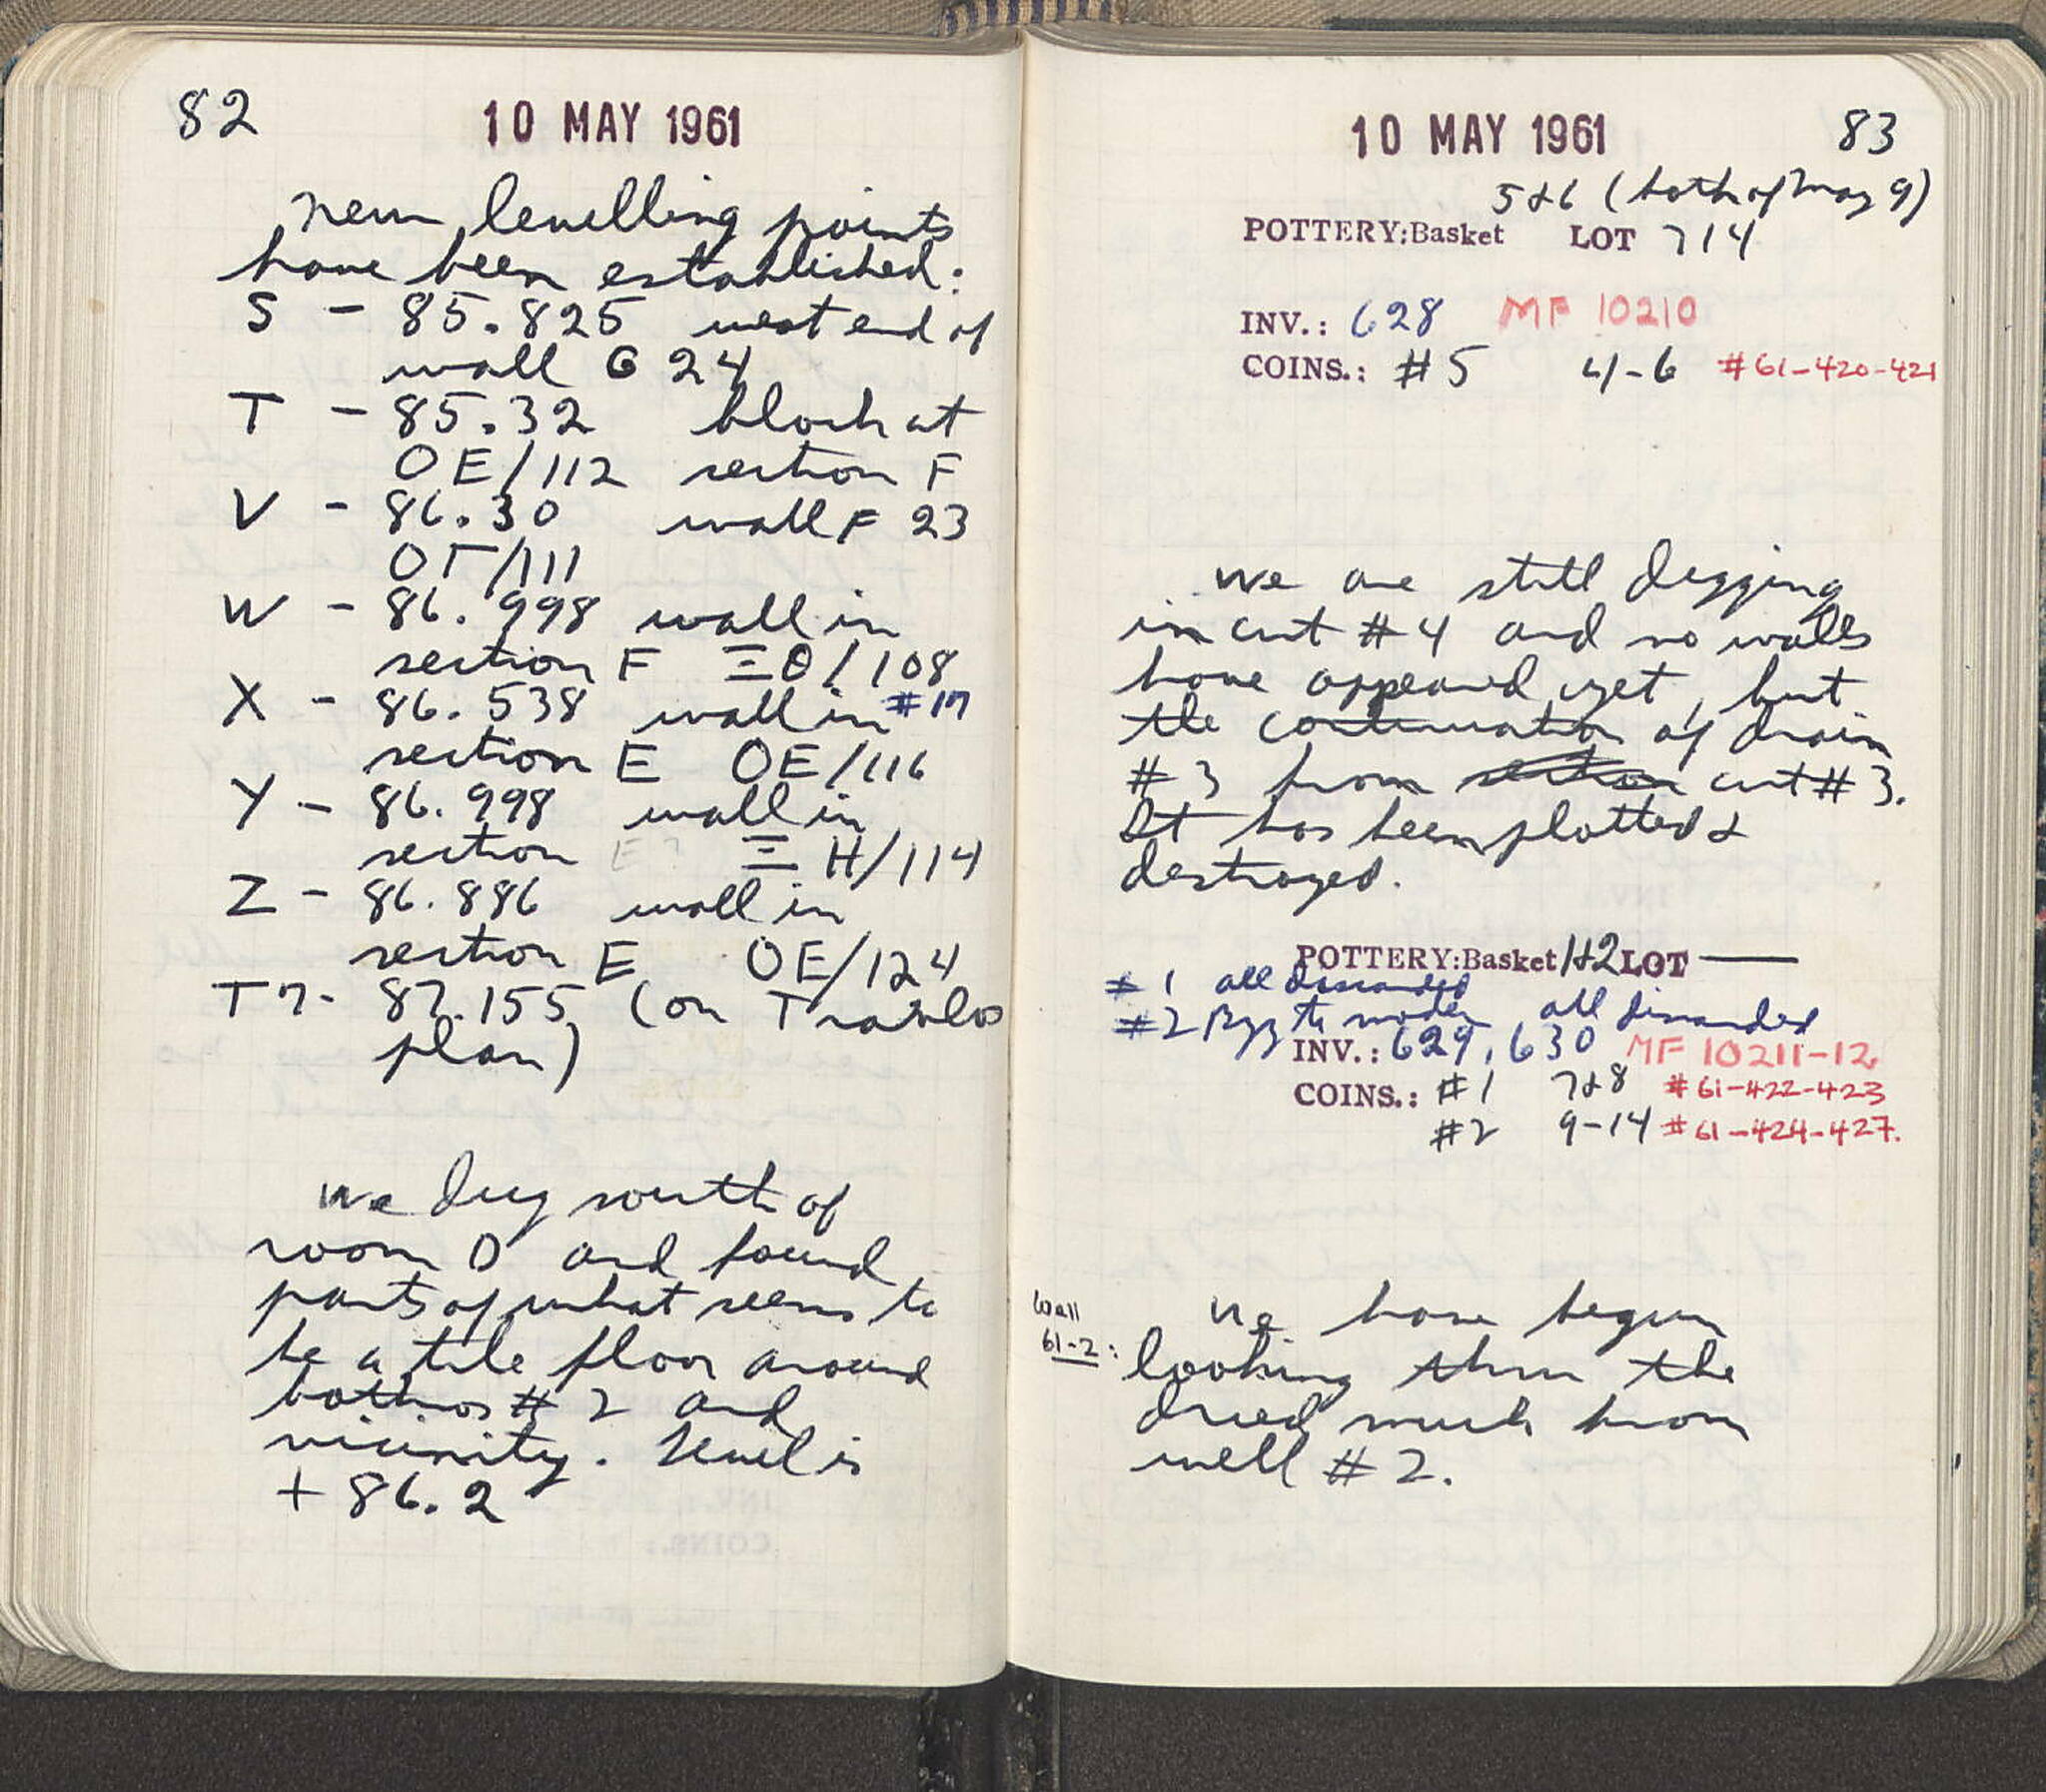 82
10 MAY 1961
New levelling points
have been established:
S - 85.825 west end of
wall G 24
T - 85.32 block at
OE/112 section F
V - 86.30 wall F 23
ΟΓ/111
W - 86.998 wall in
section F ΞΘ/108
X - 86.538 wall in #17
section E OE/116
Y - 86.998 wall in
section E? ΞH/114
Z - 86.886 wall in
section E OE/124
T7 - 87.155 (on Travlos
plan)
We dug south of
room D and found
parts of what seems to
be a tile floor around
bothros #2 and
vicinity. Level is
+ 86.2
10 MAY 1961
83
5 & 6 (both of May 9)
POTTERY: Basket LOT 714
INV.: 628 MF 10210
COINS.: #5 4-6 #61-420-421
We are still digging
in cut #4 and no walls
have appeared yet, but
the continuation of drain
#3 from cut #3.
It has been plotted &
destroyed.
POTTERY: Basket 1&2 LOT —
#1 all discarded
#2 Byz to modern all discarded
INV.: 629, 630 MF 10211-12
COINS.: #1 7&8 #61-422-423
#2 9-14 #61-424-427.
Wall
61-2:
We have begun
looking thru the
dried muck from
well #2.